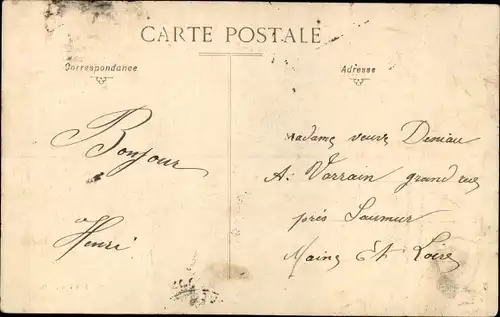 CARTE POSTALE
Correspondance
Adresse
Bonjour
Henri
Madame veuve Deniau
A. Varrain grand rue
près Saumur
Maine Et Loire